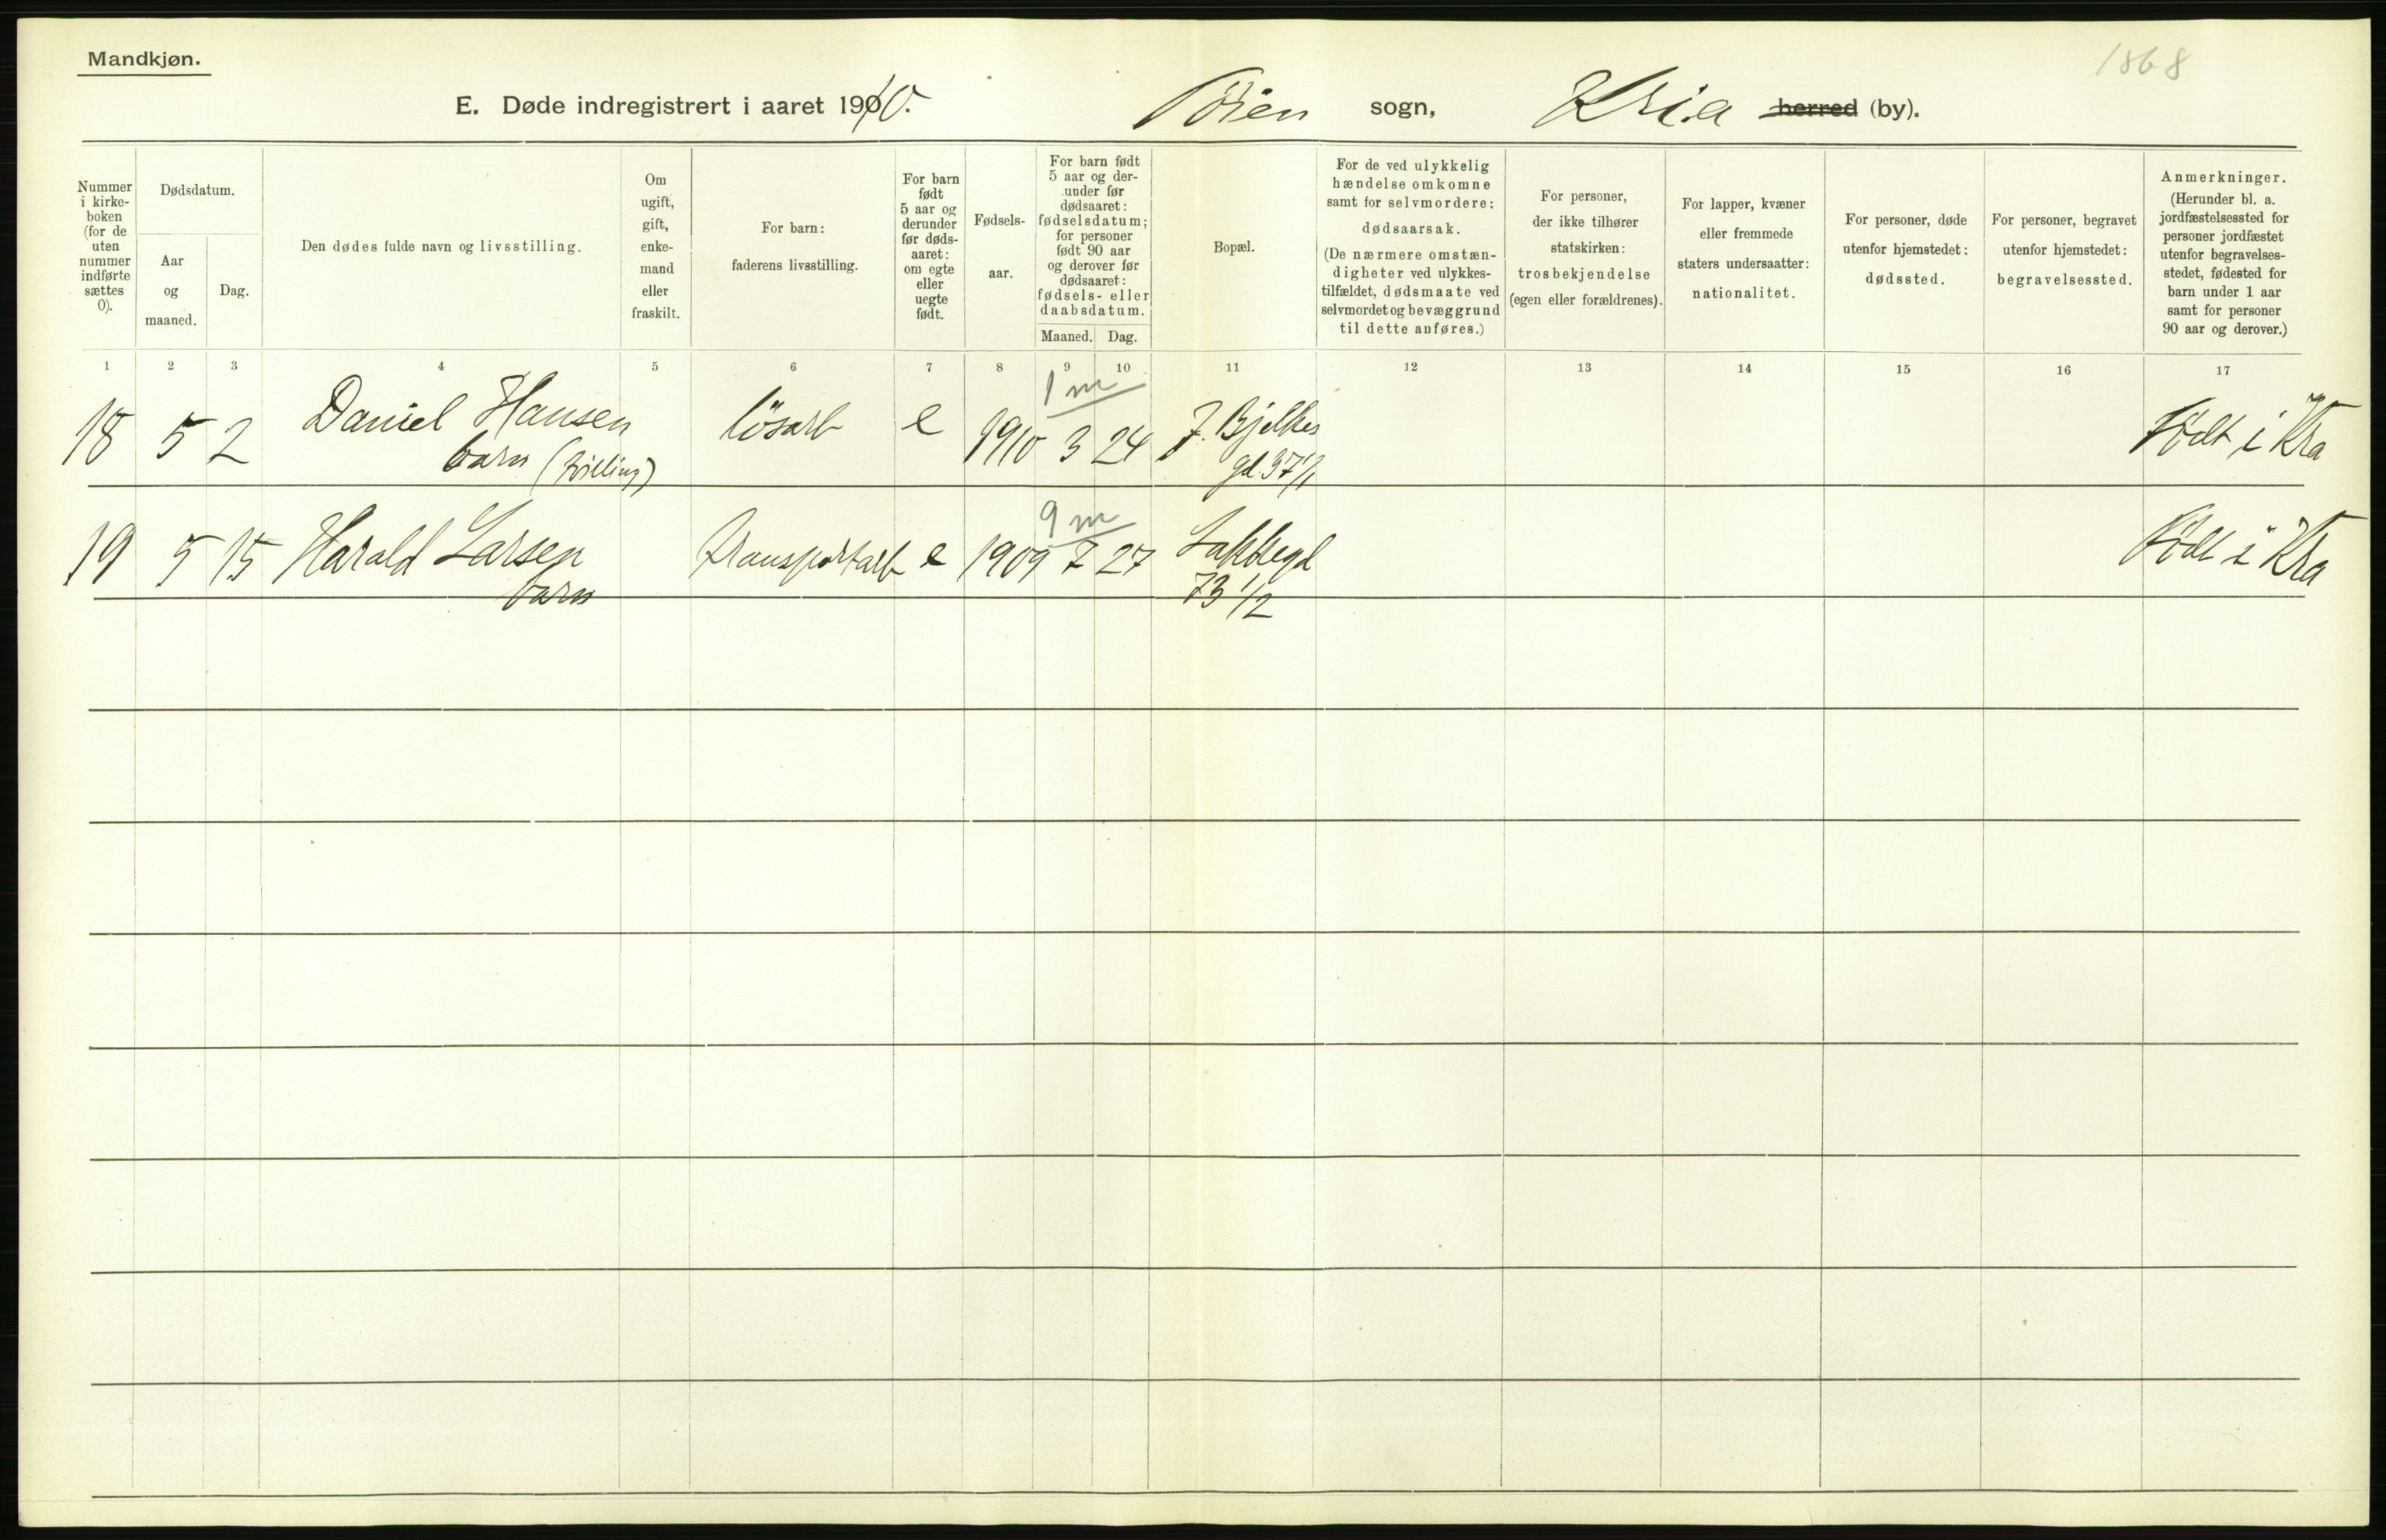 Mandkjøn.
1868
E. Døde indregistrert i aaret 1910. Tøien sogn, Kria herred (by).
Nummer i kirke- boken (for de uten nummer indførte sættes 0).
Dødsdatum.
Aar og maaned.
Dag.
Den dødes fulde navn og livsstilling.
Om ugift, gift, enke- mand eller fraskilt.
For barn: faderens livsstilling.
For barn født 5 aar og derunder før døds- aaret: om egte eller uegte født.
Fødsels- aar.
For barn født 5 aar og der- under før dødsaaret: fødselsdatum; for personer født 90 aar og derover før dødsaaret: fødsels- eller daabsdatum.
Maaned. Dag.
Bopæl.
For de ved ulykkelig hændelse omkomne samt for selvmordere: dødsaarsak. (De nærmere omstæn- digheter ved ulykkes- tilfældet, dødsmaate ved selvmordet og bevæggrund til dette anføres.)
For personer, der ikke tilhører statskirken: trosbekjendelse (egen eller forældrenes).
For lapper, kvæner eller fremmede staters undersaatter: nationalitet.
For personer, døde utenfor hjemstedet: dødssted.
For personer, begravet utenfor hjemstedet: begravelsessted.
Anmerkninger. (Herunder bl. a. jordfæstelsessted for personer jordfæstet utenfor begravelses- stedet, fødested for barn under 1 aar samt for personer 90 aar og derover.)
1 2 3 4 5 6 7 8 9 10 11 12 13 14 15 16 17
1 m
18 5 2 Daniel Hansen løsarb e 1910 3 24 J. Bjelkes Født i Kra
barn (tvilling) gd. 37 1/2
9 m
19 5 15 Harald Larsen transportarb e 1909 7 27 Lakkegd Født i Kra
barn 73 1/2